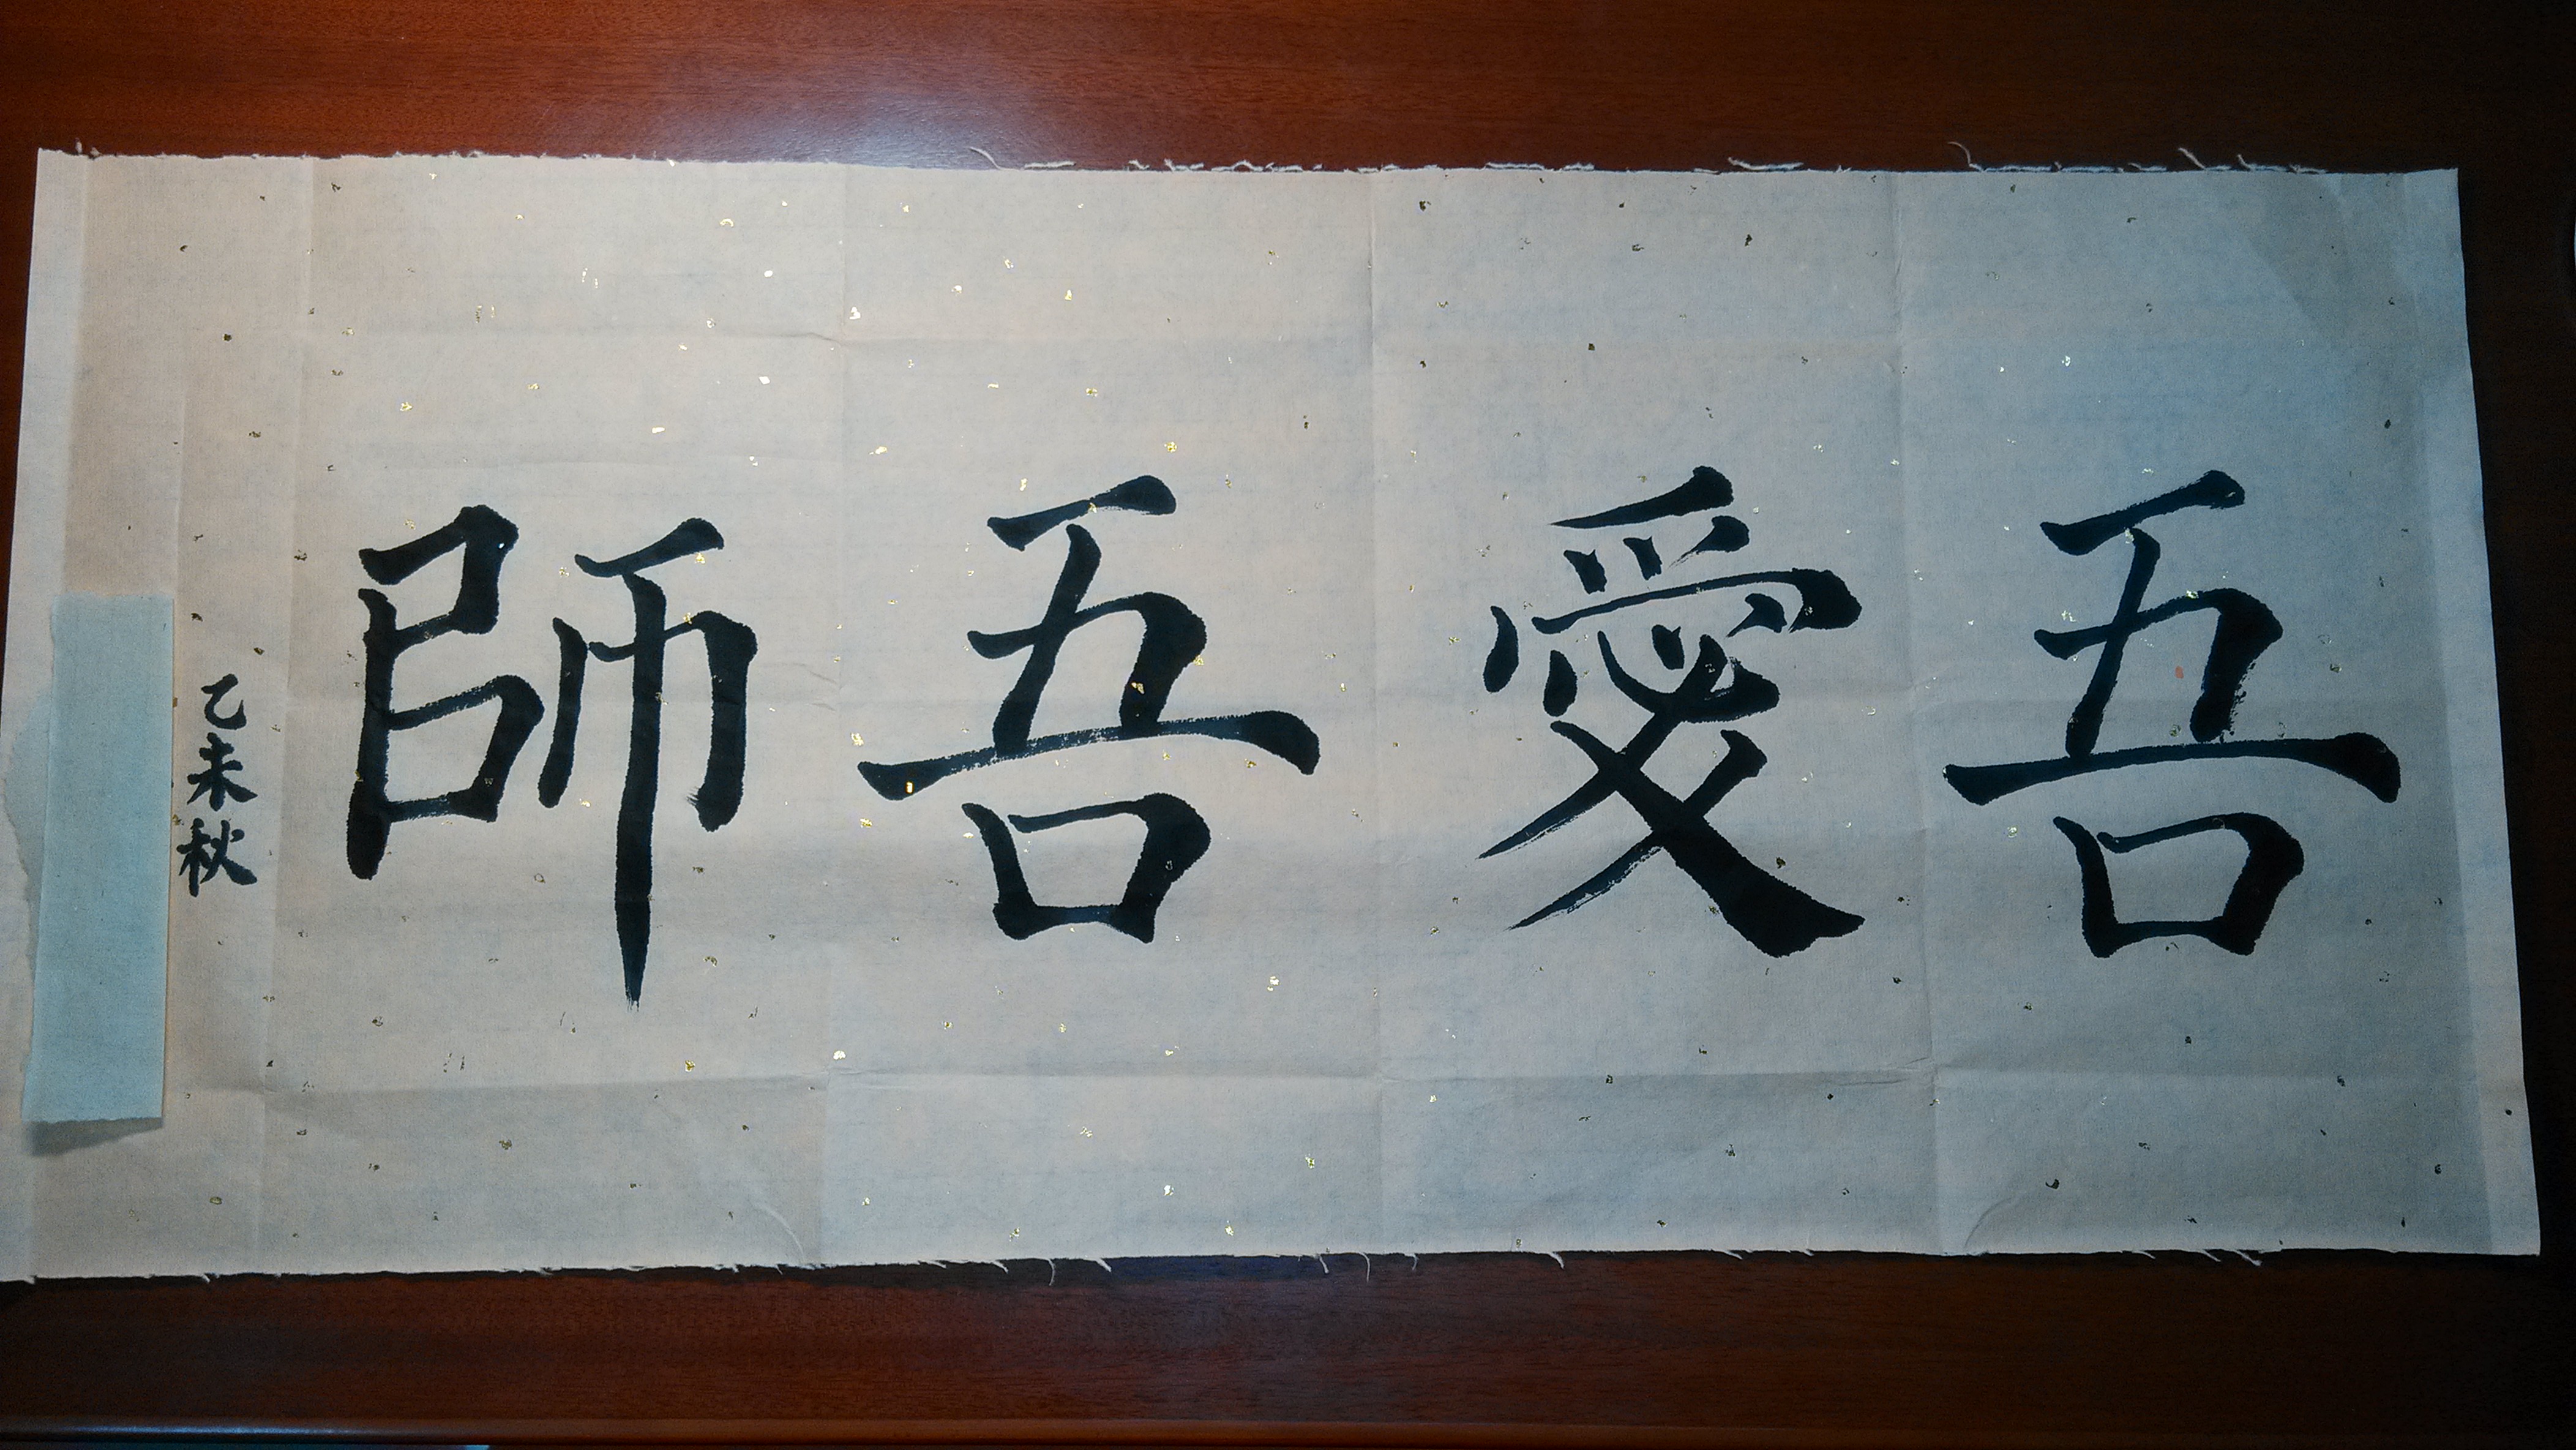 吾愛吾師
乙未秋